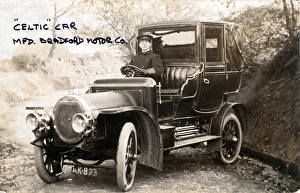 "CELTIC" CAR
MFD. BRADFORD MOTOR CO.
AK·823